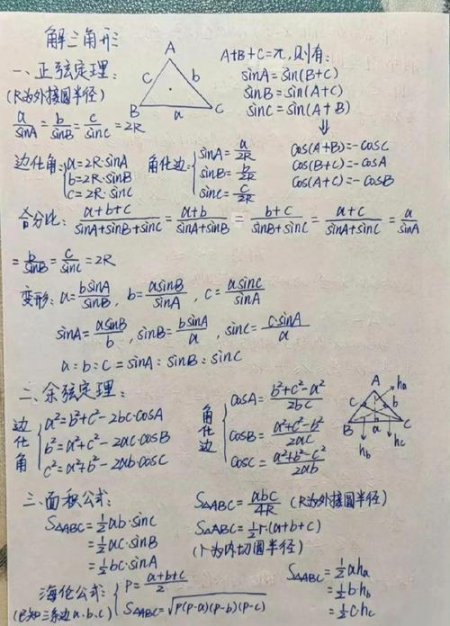 解三角形
一、正弦定理:
(R为外接圆半径)
a/sinA = b/sinB = c/sinC = 2R
A
c b
B a C
A+B+C=π,则有:
sinA=sin(B+C)
sinB=sin(A+C)
sinC=sin(A+B)
⇓
cos(A+B)=-cosC
cos(B+C)=-cosA
cos(A+C)=-cosB
边化角: a=2R·sinA
b=2R·sinB
c=2R·sinC
角化边: sinA=a/2R
sinB=b/2R
sinC=c/2R
合分比: (a+b+c)/(sinA+sinB+sinC) = (a+b)/(sinA+sinB) = (b+c)/(sinB+sinC) = (a+c)/(sinA+sinC) = a/sinA
= b/sinB = c/sinC = 2R
变形: a=bsinA/sinB, b=asinB/sinA, c=asinC/sinA
sinA=asinB/b, sinB=bsinA/a, sinC=c·sinA/a
a:b:c=sinA:sinB:sinC
二、余弦定理:
边化角
a²=b²+c²-2bc·cosA
b²=a²+c²-2ac·cosB
c²=a²+b²-2ab·cosC
角化边
cosA=(b²+c²-a²)/2bc
cosB=(a²+c²-b²)/2ac
cosC=(a²+b²-c²)/2ab
A ha
c b
B a C
hb hc
三、面积公式:
S△ABC=½ab·sinC
=½ac·sinB
=½bc·sinA
S△ABC=abc/4R (R为外接圆半径)
S△ABC=½r·(a+b+c)
(r为内切圆半径)
海伦公式:
(已知三条边a.b.c)
P=(a+b+c)/2
S△ABC=√(P(P-a)(P-b)(P-c))
S△ABC=½aha
=½b·hb
=½c·hc